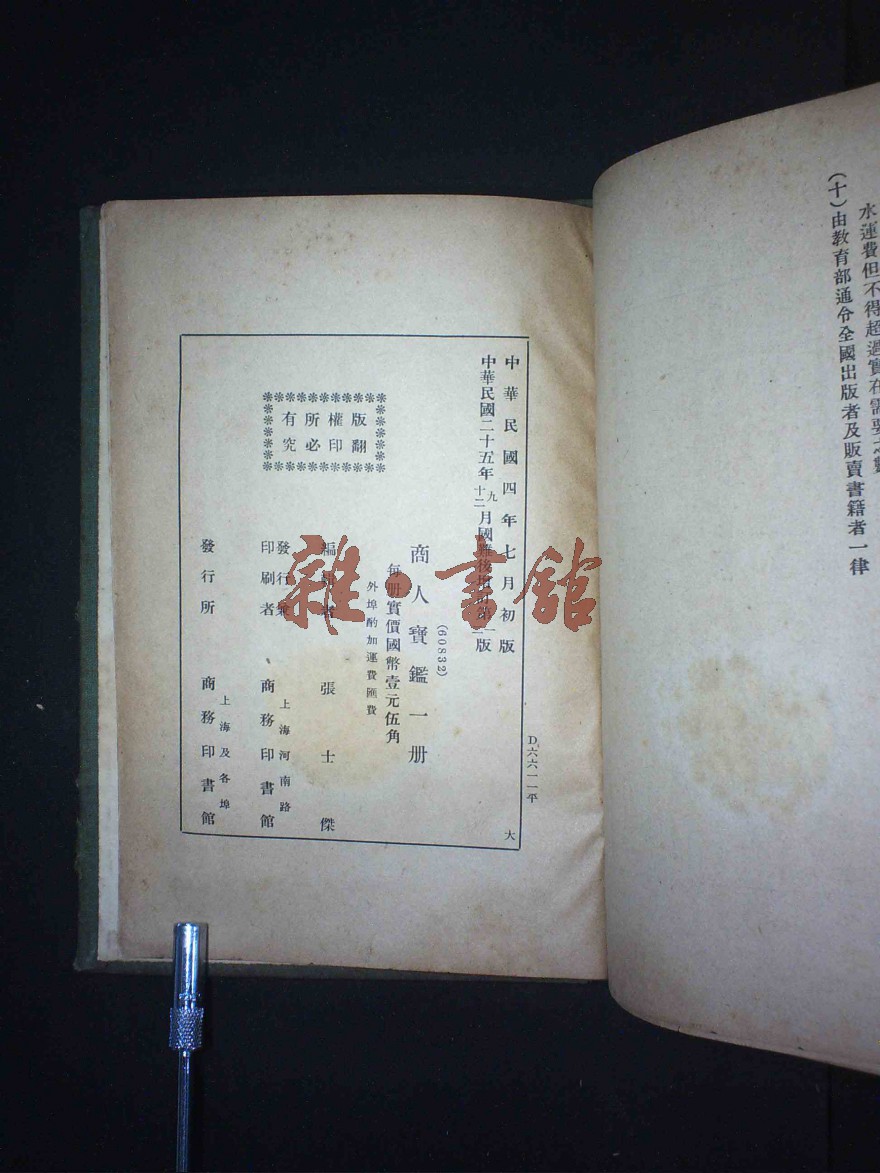 水運費但不得超過實在需要之數
(十)由教育部通令全國出版者及販賣書籍者一律
D六六一一平
中華民國四年七月初版
中華民國二十五年九十二月國難後增訂第一版
大
(60832)
商人寶鑑一册
每册實價國幣壹元伍角
外埠酌加運費匯費
版權所有
翻印必究
編輯者 張士傑
發行兼印刷者 上海河南路 商務印書館
發行所 上海及各埠 商務印書館
雜·書館